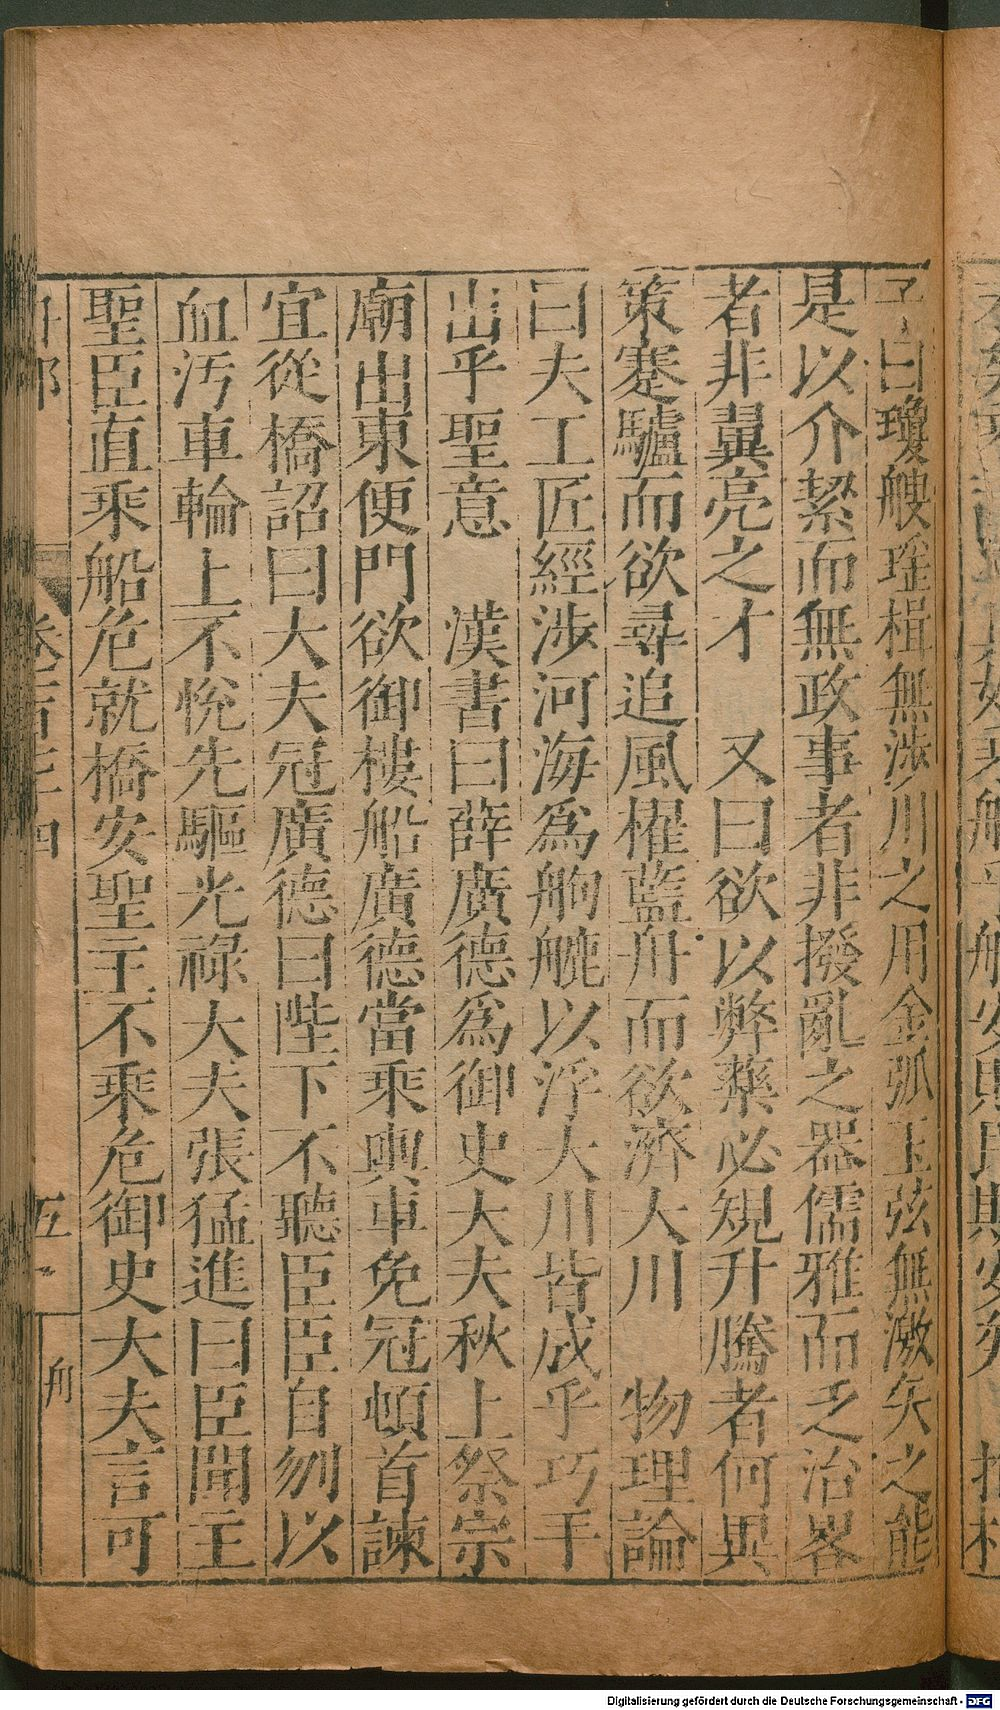 子曰瓊艘瑶楫無涉川之用金弧玉弦無激矢之能
是以介絜而無政事者非撥亂之器儒雅而乏治畧
者非翼亮之才　又曰欲以弊藥必規升騰者何異
策蹇驢而欲尋追風櫂藍舟而欲濟大川　物理論
曰夫工匠經涉河海爲舸艬以浮大川皆成乎巧手
出乎聖意　漢書曰薛廣德爲御史大夫秋上祭宗
廟出東便門欲御樓船廣德當乘輿車免冠頓首諫
宜從橋詔曰大夫冠廣德曰陛下不聽臣臣自刎以
血汚車輪上不悅先驅光祿大夫張猛進曰臣聞主
聖臣直乘船危就橋安聖主不乘危御史大夫言可
卷百三十四
五
舟
Digitalisierung gefördert durch die Deutsche Forschungsgemeinschaft - DFG